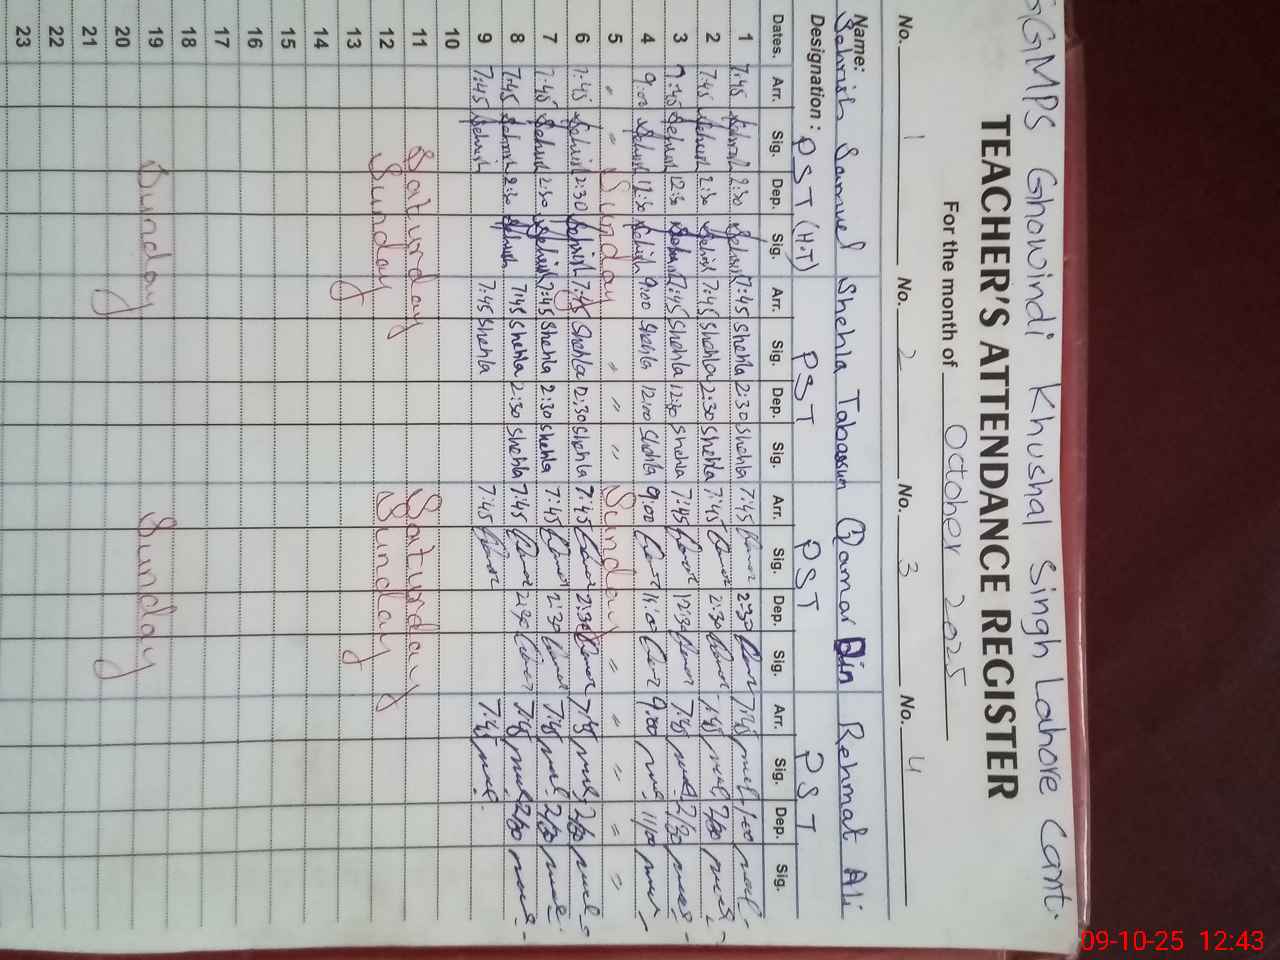 GGMPS Ghowindi Khushal Singh Lahore Cantt.
TEACHER'S ATTENDANCE REGISTER
For the month of October 2025
No. 1 No. 2 No. 3 No. 4
Name: Sehrish Samuel Shehla Tabassum Qamar Din Rehmat Ali
Designation: PST (H.T) PST PST PST
Dates. Arr. Sig. Dep. Sig. Arr. Sig. Dep. Sig. Arr. Sig. Dep. Sig. Arr. Sig. Dep. Sig.
1 7:45 Sehrish 2:30 Sehrish 7:45 Shehla 2:30 Shehla 7:45 2:30 7:45
2 7:45 Sehrish 2:30 Sehrish 7:45 Shehla 2:30 Shehla 7:45 2:30 7:45 2/30
3 7:45 Sehrish 12:30 Sehrish 7:45 Shehla 12:30 Shehla 7:45 12:30 7:45 2/30
4 9:00 Sehrish 12:30 Sehrish 9:00 Shehla 12:00 Shehla 9:00 11:00 9:00 11/00
5 " " Sunday " " " Sunday " " " " "
6 7:45 Sehrish 2:30 Sehrish 7:45 Shehla 2:30 Shehla 7:45 2:30 7:45 2/30
7 7:45 Sehrish 2:30 Sehrish 7:45 Shehla 2:30 Shehla 7:45 2:30 7:45 2/30
8 7:45 Sehrish 2:30 Sehrish 7:45 Shehla 2:30 Shehla 7:45 2:30 7:45 2/30
9 7:45 Sehrish 7:45 Shehla 7:45 7:45
10
11 Saturday Saturday
12 Sunday Sunday
13
14
15
16
17
18
19 Sunday Sunday
20
21
22
23
09-10-25 12:43